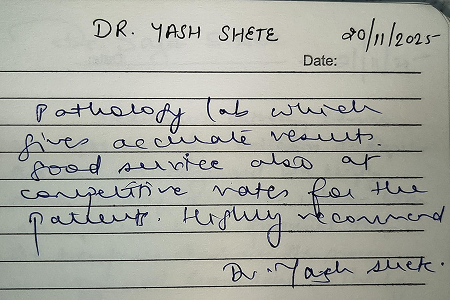 DR. YASH SHETE 20/11/2025
Date:
Pathology lab which
gives accurate results.
good service also at
competitive rates for the
patients. Highly recommend
Dr. Yash Shete.